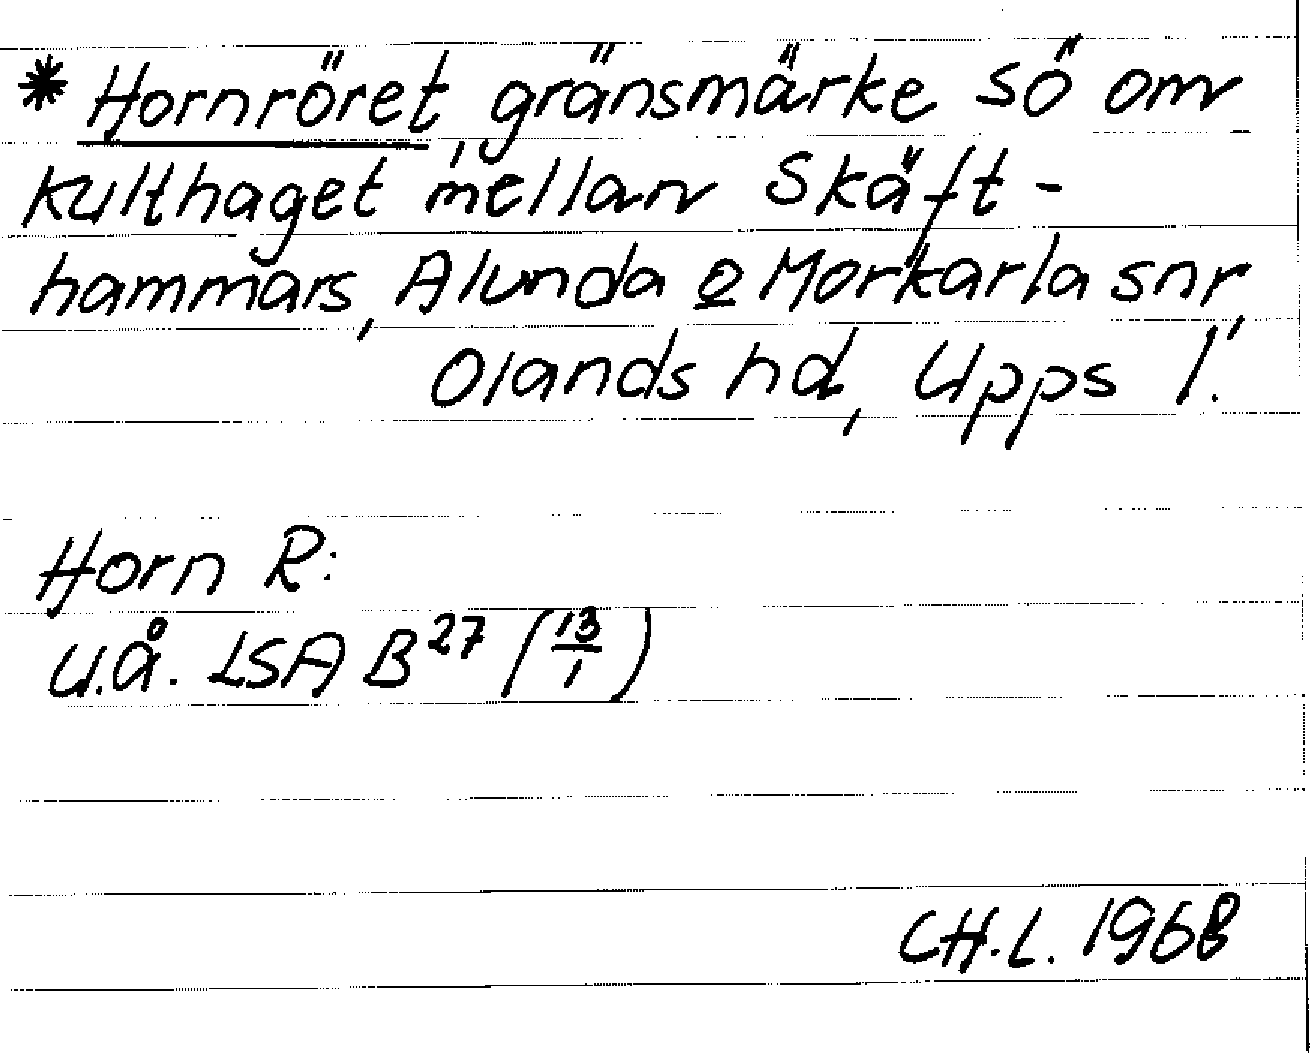 * Hornröret, gränsmärke sö om
Kulthaget mellan Skäft-
hammars, Alunda o Morkarla snr,
Olands hd, Upps l.
Horn R:
u.å. LSA B27 (13/1)
CH.L. 1968